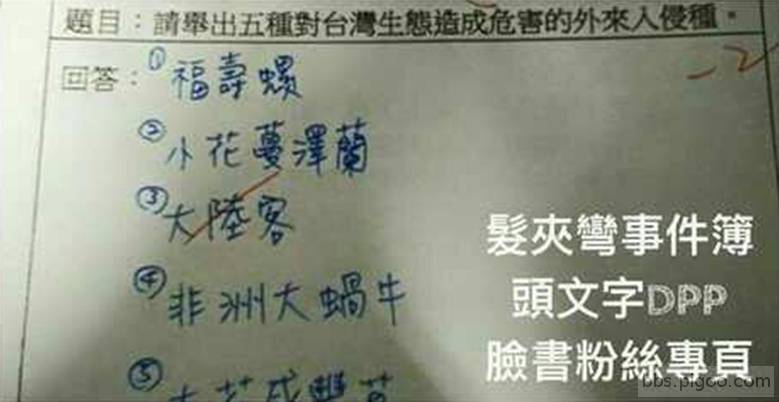 題目：請舉出五種對台灣生態造成危害的外來入侵種。
-2
回答：① 福壽螺
② 小花蔓澤蘭
③ 大陸客
④ 非洲大蝸牛
⑤ 大花咸豐草
髮夾彎事件簿
頭文字DPP
臉書粉絲專頁
bbs.pigoo.com